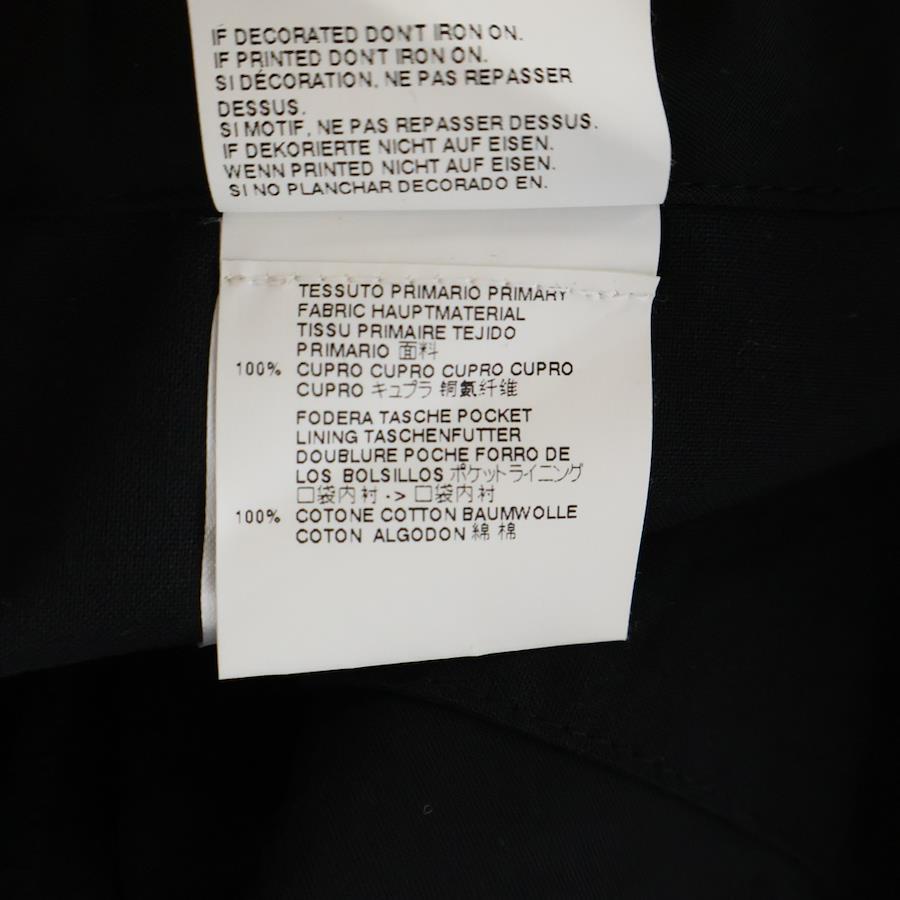 IF DECORATED DON'T IRON ON.
IF PRINTED DON'T IRON ON.
SI DÉCORATION, NE PAS REPASSER
DESSUS.
SI MOTIF, NE PAS REPASSER DESSUS.
IF DEKORIERTE NICHT AUF EISEN.
WENN PRINTED NICHT AUF EISEN.
SI NO PLANCHAR DECORADO EN.
TESSUTO PRIMARIO PRIMARY
FABRIC HAUPTMATERIAL
TISSU PRIMAIRE TEJIDO
PRIMARIO 面料
100% CUPRO CUPRO CUPRO CUPRO
CUPRO キュプラ 铜氨纤维
FODERA TASCHE POCKET
LINING TASCHENFUTTER
DOUBLURE POCHE FORRO DE
LOS BOLSILLOS ポケットライニング
口袋内衬 -> 口袋内衬
100% COTONE COTTON BAUMWOLLE
COTON ALGODON 綿 棉